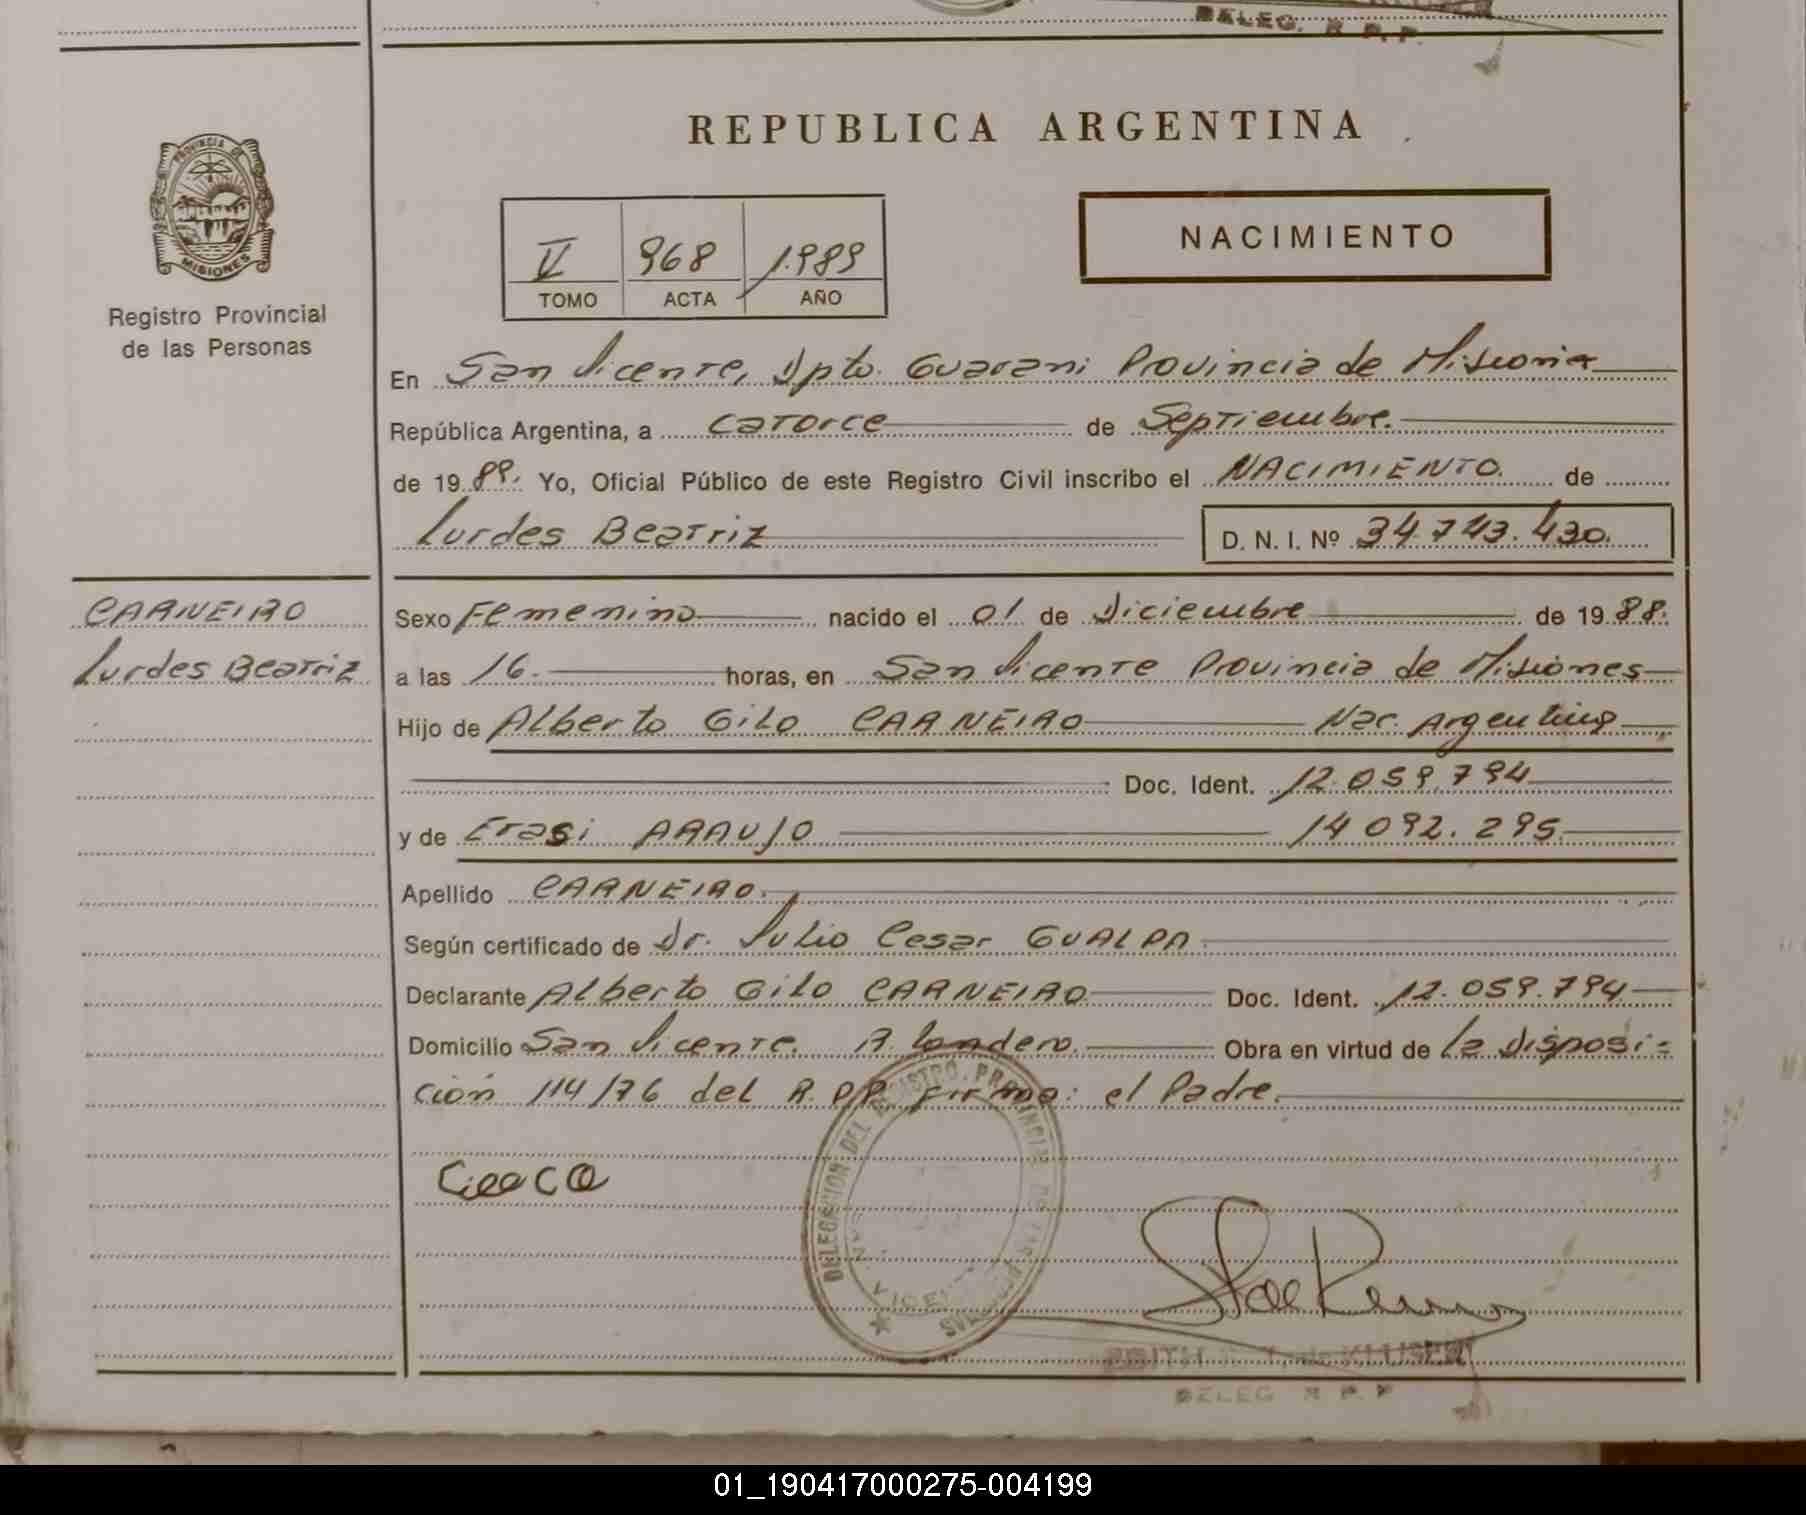 DELEG. R P. P.
REPUBLICA ARGENTINA
PROVINCIA DE
MISIONES
Registro Provincial
de las Personas
V 968 1.989
TOMO ACTA AÑO
NACIMIENTO
En San Vicente, Dpto. Guarani Provincia de Misiones
República Argentina, a catorce de Septiembre.
de 19 89. Yo, Oficial Público de este Registro Civil inscribo el NACIMIENTO. de
Lurdes Beatriz D. N. I. Nº 34.743.430.
CARNEIRO
Lurdes Beatriz
Sexo Femenino nacido el 01 de Diciembre de 19 88.
a las 16. horas, en San Vicente Provincia de Misiones
Hijo de Alberto Gilo CARNEIRO Nac. Argentina
Doc. Ident. 12.059.794
y de Erasi ARAUJO 14 092.295.
Apellido CARNEIRO.
Según certificado de Dr. Julio Cesar GUALPA.
Declarante Alberto Gilo CARNEIRO Doc. Ident. 12.059.794
Domicilio San Vicente. Obra en virtud de la disposi=
ción 114/76 del R.P.P. Firma: el Padre.
DELEGACION DEL REGISTRO PROVINCIAL DE LAS PERSONAS
DELEG R P. P
01_190417000275-004199